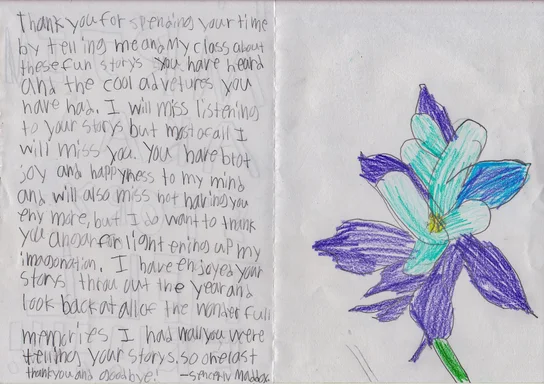 Thank you for spending your time
by telling me and My class about
these fun storys you have heard
and the cool advetures you
have had. I will miss listening
to your storys but most of all I
will miss you. You have brot
joy and happyness to my mind
and will also miss not having you
eny more, but I do want to thank
you again for light ening up my
imagonation. I have enjoyed your
storys throu out the year and
look back at all of the wonder full
memories I had wall you were
telling your storys. so one last
thank you and goodbye! -Sincerly Maddox